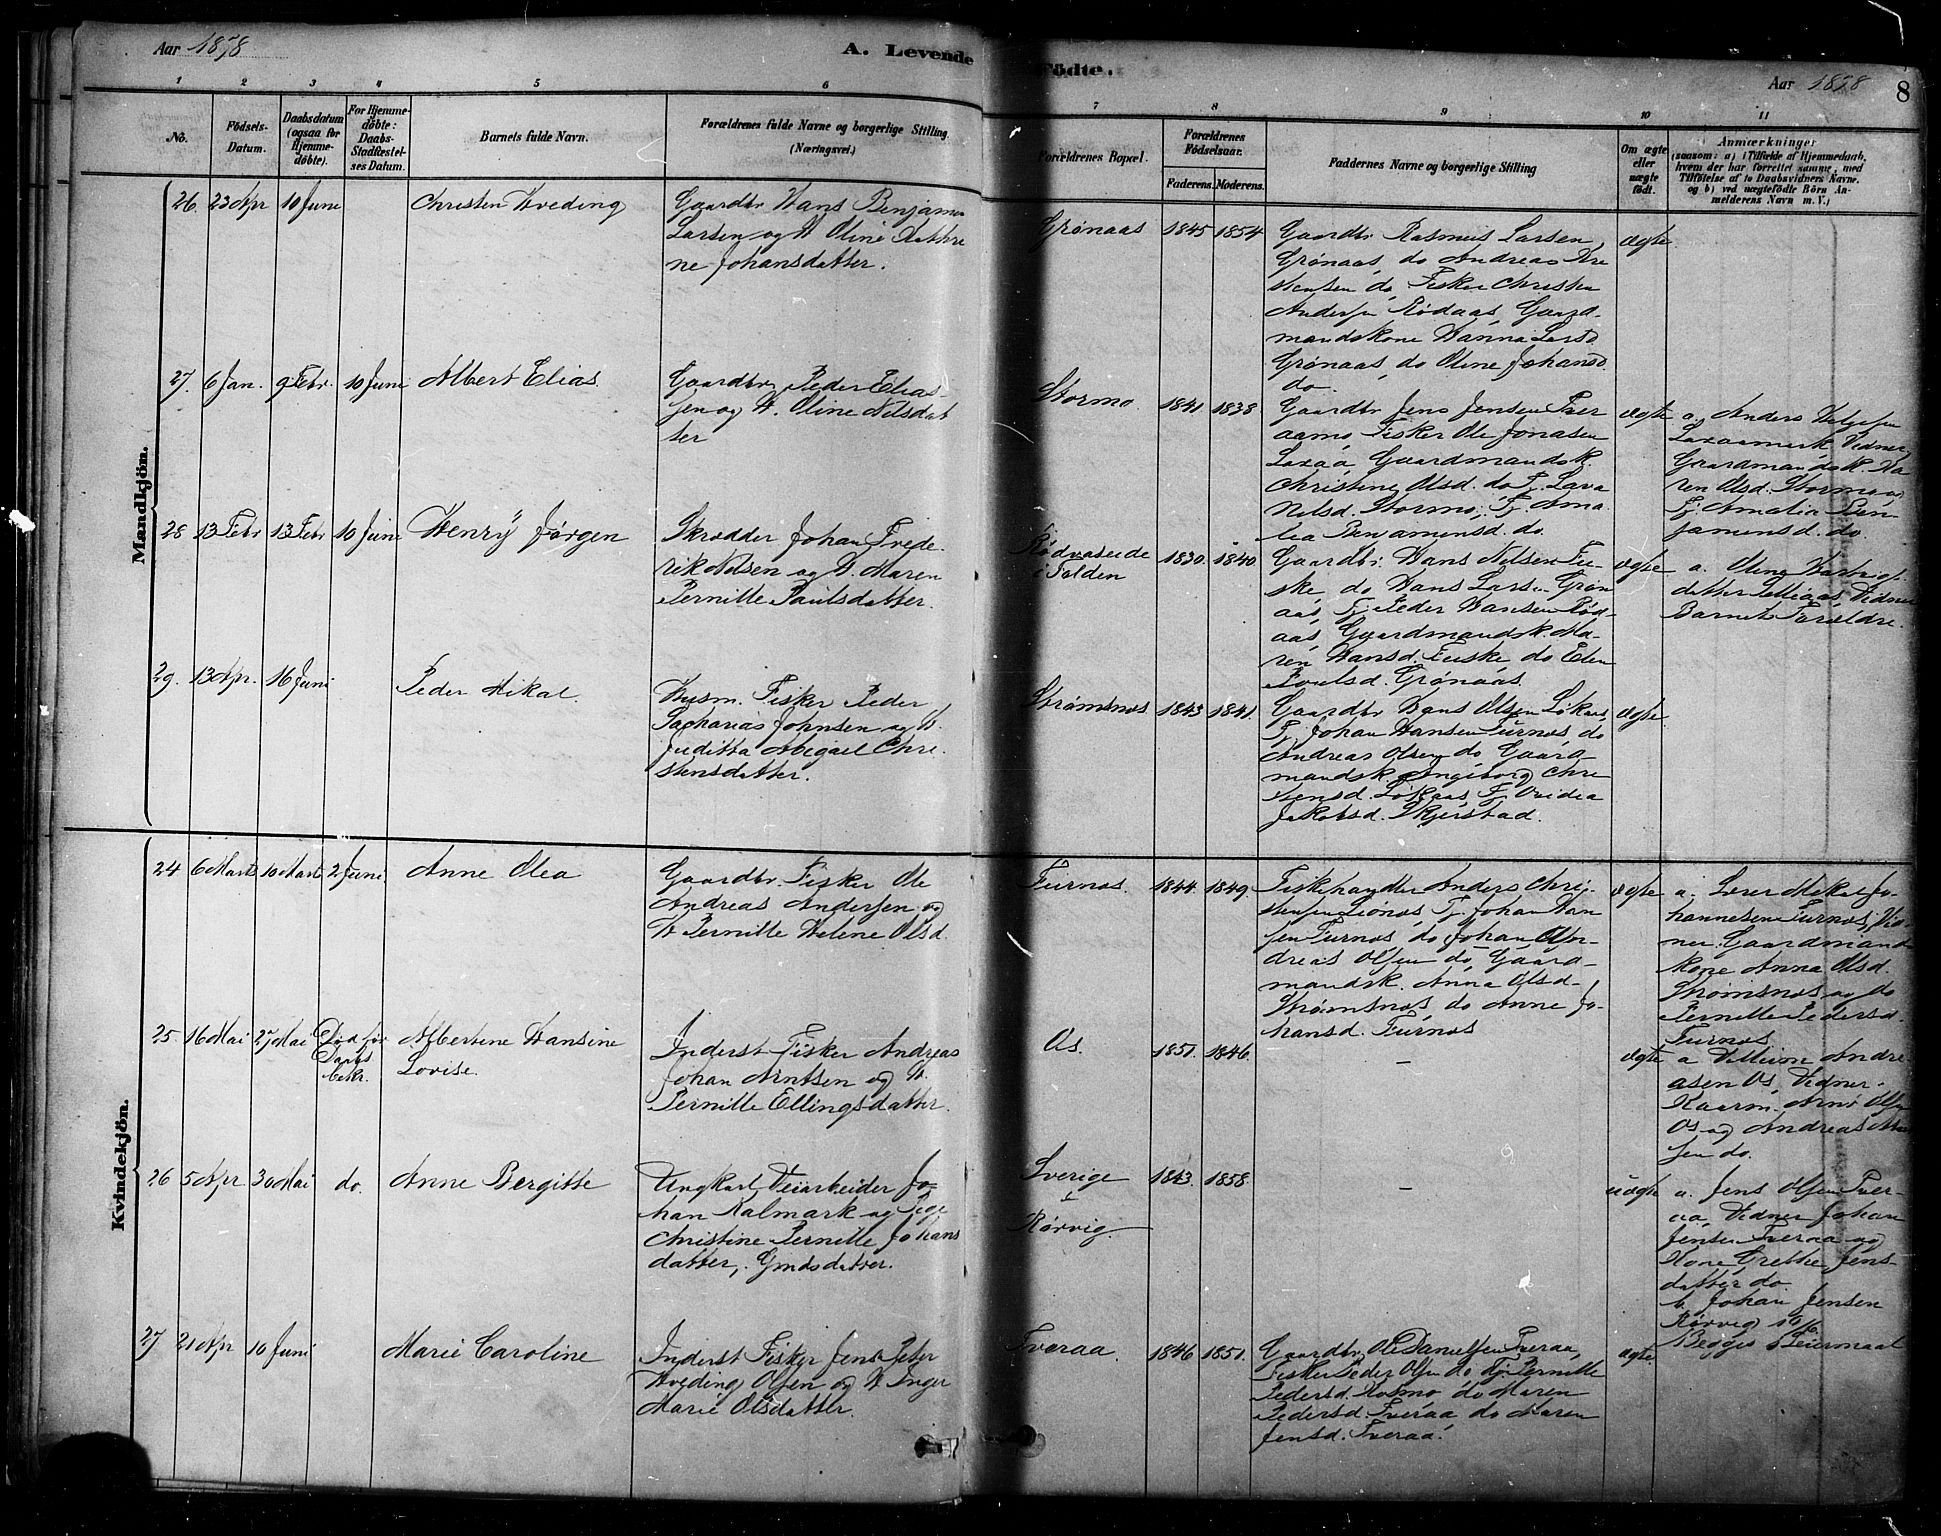 Aar 1878
A. Levende Födte.
Aar 1878
8
1 2 3 4 5 6 7 8 9 10 11
No.
Födsels-
Datum.
Daabsdatum
(ogsaa for
Hjemme-
døbte).
For Hjemme-
døbte:
Daabs-
Stadfæstel-
ses Datum.
Barnets fulde Navn.
Forældrenes fulde Navne og borgerlige Stilling.
(Næringsvei.)
Forældrenes Bopæl.
Forældrenes
Fødselsaar.
Faderens. Moderens.
Faddernes Navne og borgerlige Stilling
Om ægte
eller
uægte
født.
Anmærkninger
(saasom: a) i Tilfælde af Hjemmedaab,
hvem der har forrettet samme, med
Tilføielse af to Daabsvidners Navne,
og b) ved uægtefødte Børn An-
melderens Navn m. V.)
Mandkjön.
26. 23 Apr 10 Juni
Christen Hveding
Gaardbr Hans Benjamin
Larsen og H. Oline Kathri
ne Johansdatter.
Grønaas
1845 1854
Gaardbr. Rasmus Larsen
Grønaas, do Andreas Kri
stensen do, Fisker Christen
Andersen Rødaas, Gaard-
mandskone Hanna Larsd.
Grønaas, do Oline Johansd.
do.
ægte
27. 6 Jan. 9 Febr. 10 Juni
Albert Elias.
Gaardbr Peder Elias-
sen og H. Oline Nilsdat
ter
Stormo.
1841 1838
Gaardbr Jens Jensen Tver
aamo, Fisker Ole Jonasen
Laxaa, Gaardmandsk.
Christine Olsd. do Pj. Lava
Nilsd. Stormo, Pj. Ama
lia Benjaminsd. do.
ægte
a. Anders Helgesen
Laxaamark, Vidner,
Gaardmandsk. Ka
ren Olsd. Stormo og
Pj. Amalia Ben-
jaminsd. do.
28 13 Febr 13 Febr 10 Juni
Henrÿ Jørgen
Skrædder Johan Frede-
rik Nilsen og H. Maren
Pernille Paulsdatter.
Rødvaseide
i Folden
1830. 1840.
Gaardbr. Hans Nilsen Fu-
ske, do Hans Larsen Grøn
aas, Pj. Peder Hansen Rød-
aas, Gaardmandsk. Ma-
ren Hansd. Fuske do Elen
Poulsd. Grønaas.
ægte
a. Oline Hartvigs-
datter Lilliaas, Vidner
Barnets Forældre.
29. 13 Apr. 16 Juni
Peder Mikal.
Husm. Fisker Peder
Zacharias Johnsen og H.
Juditta Abigael Chri
stensdatter.
Strømsnæs
1843 1841.
Gaardbr Hans Olsen Løkaas,
Pj. Johan Hansen Furnæs, do
Andreas Olsen do, Gaard-
mandsk. Ingeborg Chri
stensd. Løkaas, Pj.
Jakobsd. Skjerstad.
ægte
Kvindekjön.
24 6 Marts 10 Marts 2 Juni.
Anne Olea
Gaardbr. Fisker Ole
Andreas Andersen og
H. Pernille Helene Olsd.
Furnæs.
1844. 1849.
Fiskehandler Anders Chri-
stensen, Pj. Johan Han
sen Furnæs, do Johan An-
dreas Olsen do, Gaard-
mandsk. Anna Olsd-
Strømsnæs, do Anne Jo-
hansd. Furnæs
ægte
a. Lærer Mikal Jo-
hannesen Furnæs, Vid-
ner. Gaardmands
kone Anna Olsd.
Strømsnæs og do
Pernille Pedersd.
Furnæs.
25 16 Mai 27 Mai Død før
Daabs
bekr.
Albertine Hansine
Lovise.
Inderst Fisker Andreas
Johan Arntsen og H.
Pernille Ellingsdatter.
Os.
1851. 1846.
–
ægte
a Villum Andre
asen Os, Vidner.
Kaarm. Arnt Olsen
Os og Andreas
sen do.
26 5 Apr 30 Mai do.
Anne Bergitte
Ungkarl, Veiarbeider Jo-
han Kalmark og Pige
Christine Pernille Johans
datter, Gmdsdatter.
Sverige
Rørvig.
1843. 1858.
–
uægte
a. Jens Olsen Tver-
aa, Vidner Johan
Jensen Tveraa og
Kone Grethe Jens
datter do
b. Johan Jensen
Rørvig
Begges 1 Leiermaal
27 21 Apr 10 Juni
Marie Caroline
Inderst Fisker Jens Peter
Hveding Olsen og H. Inger
Marie Olsdatter.
Tveraa.
1846 1851.
Gaardbr. Ole Danielsen Tveraa,
Fisker Peder Olsen do, Pj. Pernille
Pedersd. Holmo do Maren
Pedersd. Tveraa do Maren
Jensd. Tveraa.
ægte